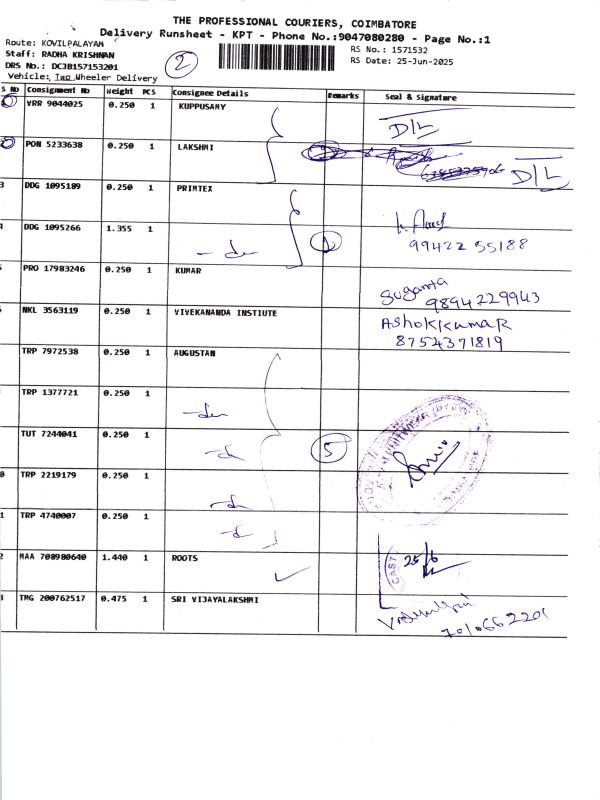 THE PROFESSIONAL COURIERS, COIMBATORE
Delivery Runsheet - KPT - Phone No.:9047080280 - Page No.:1
Route: KOVILPALAYAM
Staff: RADHA KRISHNAN
DRS No.: DCJB157153201
Vehicle: Two Wheeler Delivery
2
RS No.: 1571532
RS Date: 25-Jun-2025
S No Consignment No Weight PCS Consignee Details Remarks Seal & Signature
VRR 9044025 0.250 1 KUPPUSAMY D/L
PON 5233638 0.250 1 LAKSHMI D/L
3 DDG 1095189 0.250 1 PRIMTEX
4 DDG 1095266 1.355 1 -do- 2
99422 55188
PRO 17983246 0.250 1 KUMAR
Suganta
9894229943
NKL 3563119 0.250 1 VIVEKANANDA INSTIUTE
AShokkumaR
8754371819
TRP 7972538 0.250 1 AUGUSTAN
TRP 1377721 0.250 1 -do-
TUT 7244041 0.250 1 -do- 5
0 TRP 2219179 0.250 1 -do-
1 TRP 4740007 0.250 1 -do-
2 MAA 708980640 1.440 1 ROOTS 25/6
3 TMG 200762517 0.475 1 SRI VIJAYALAKSHMI
7010662201